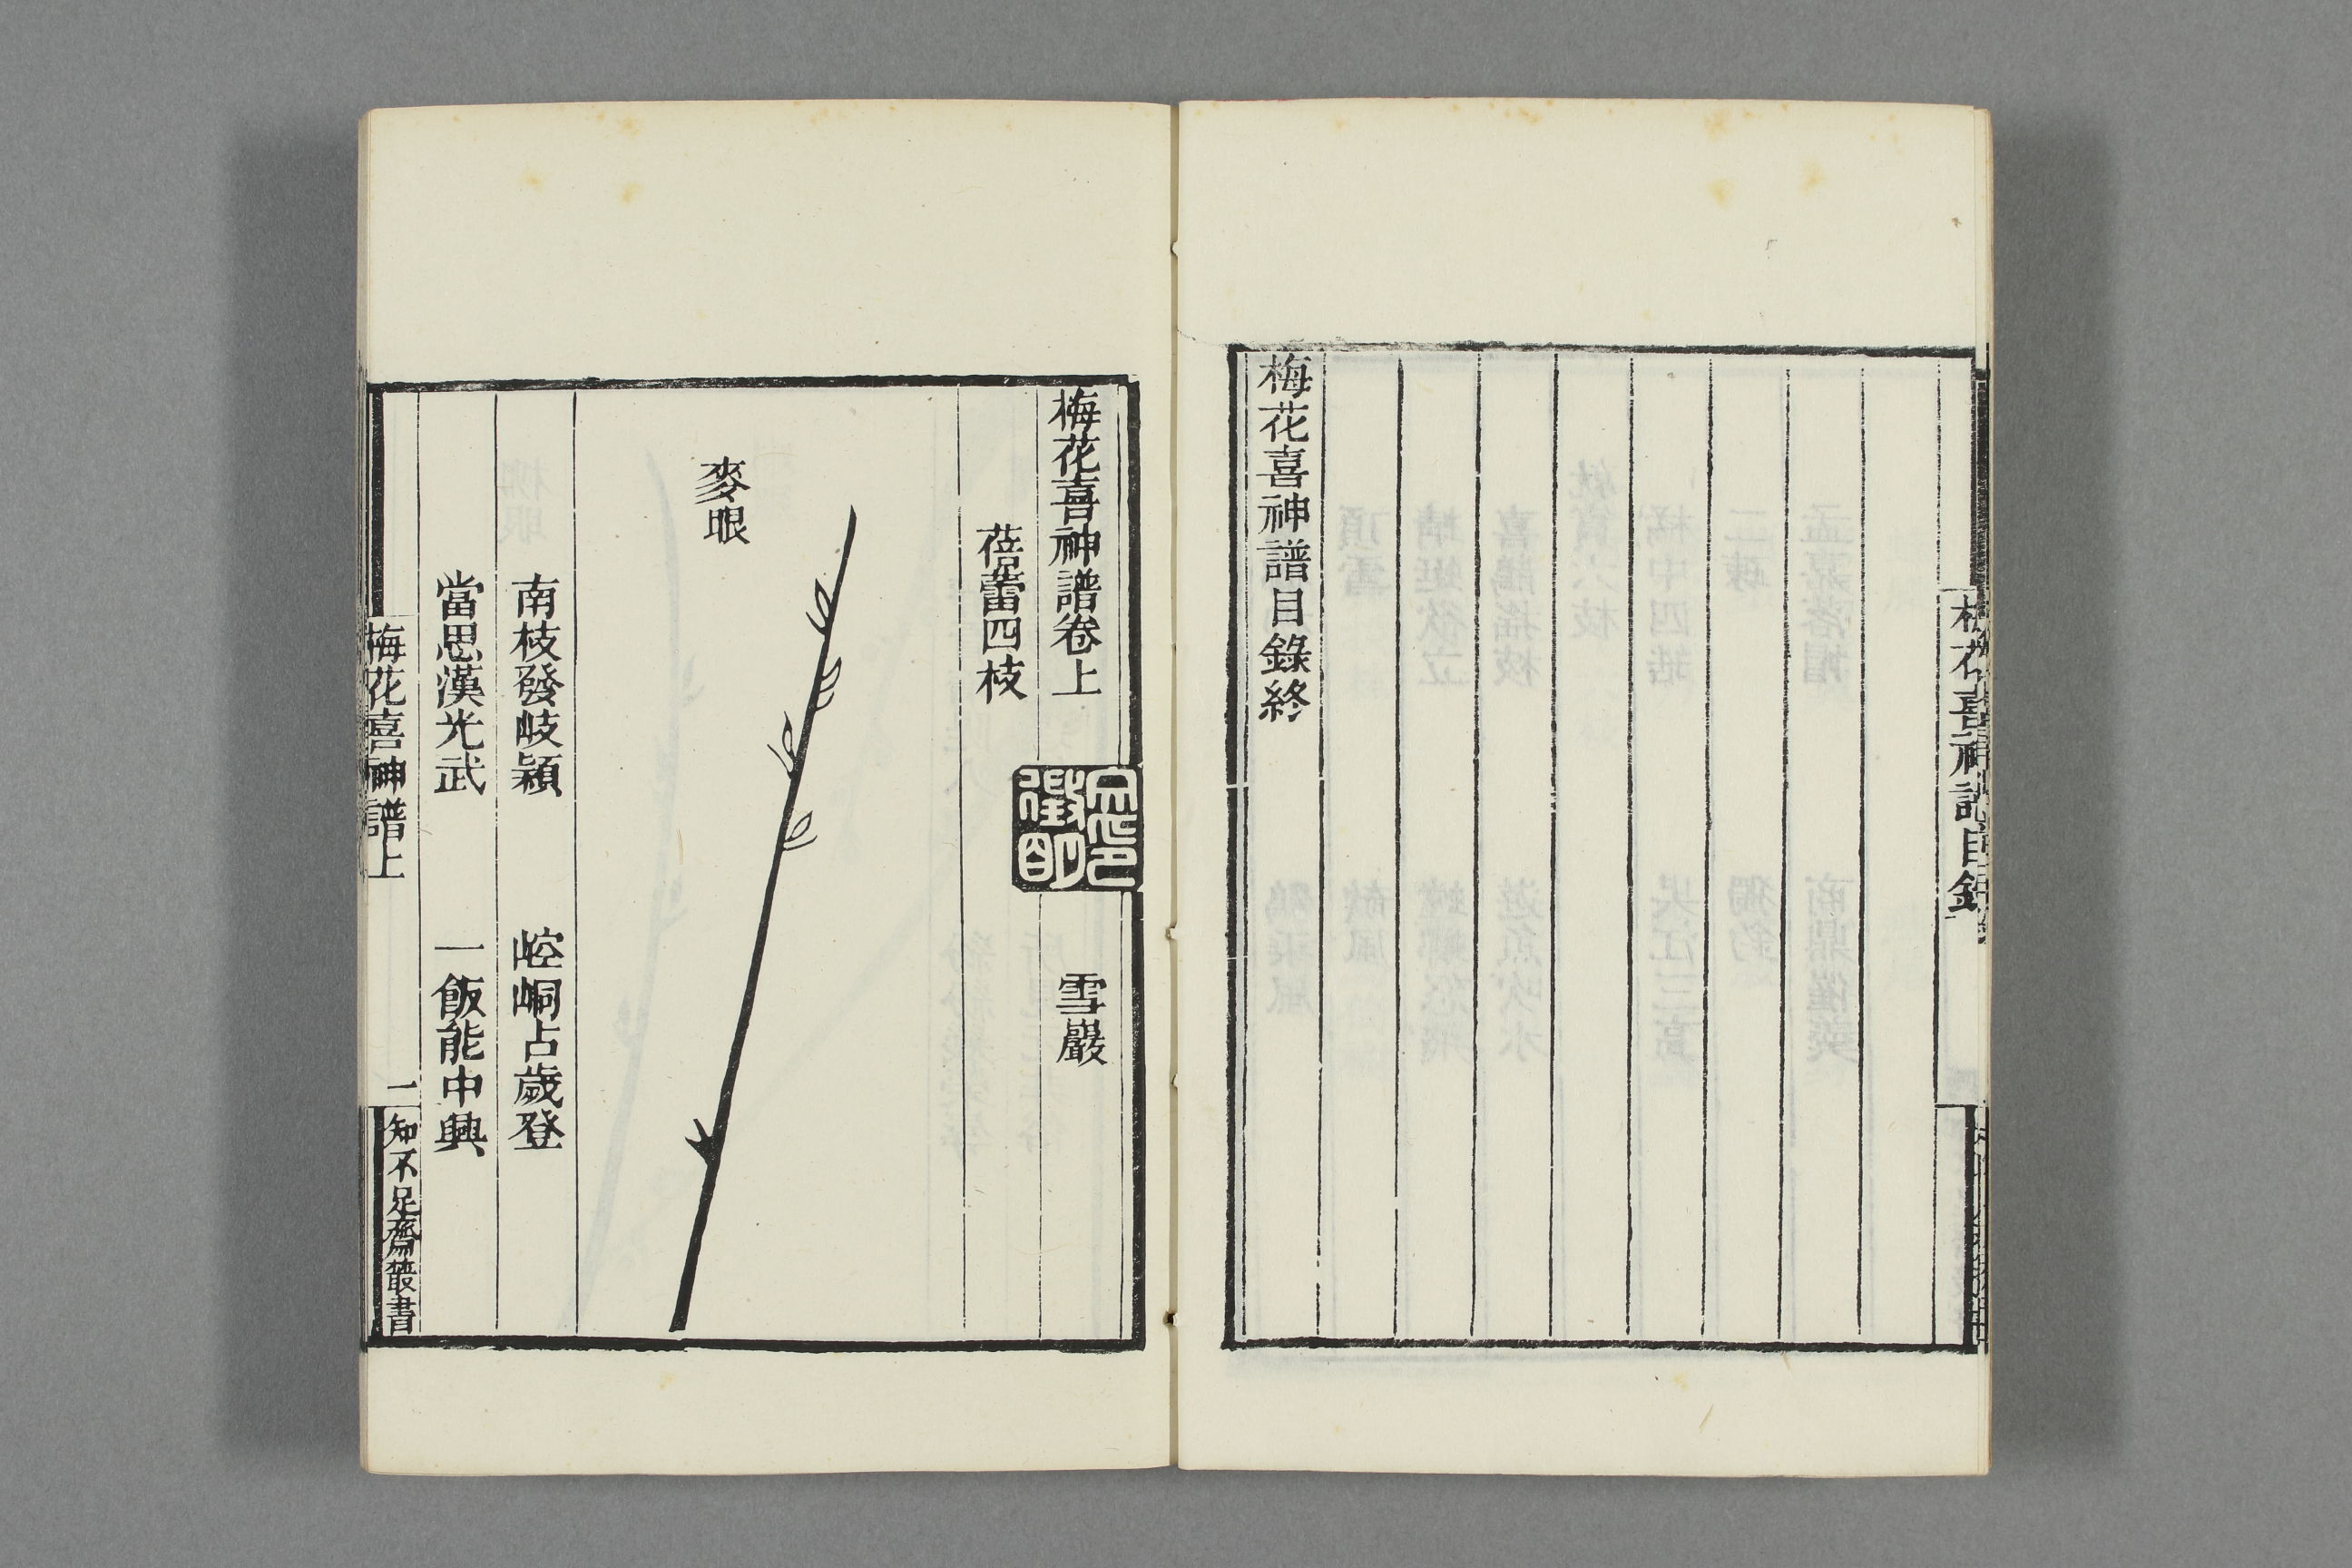 梅花喜神譜目錄
梅花喜神譜目錄終
梅花喜神譜卷上
雪巖
蓓蕾四枝
麥眼
南枝發岐穎
崆峒占歲登
當思漢光武
一飯能中興
梅花喜神譜上
二
知不足齋叢書